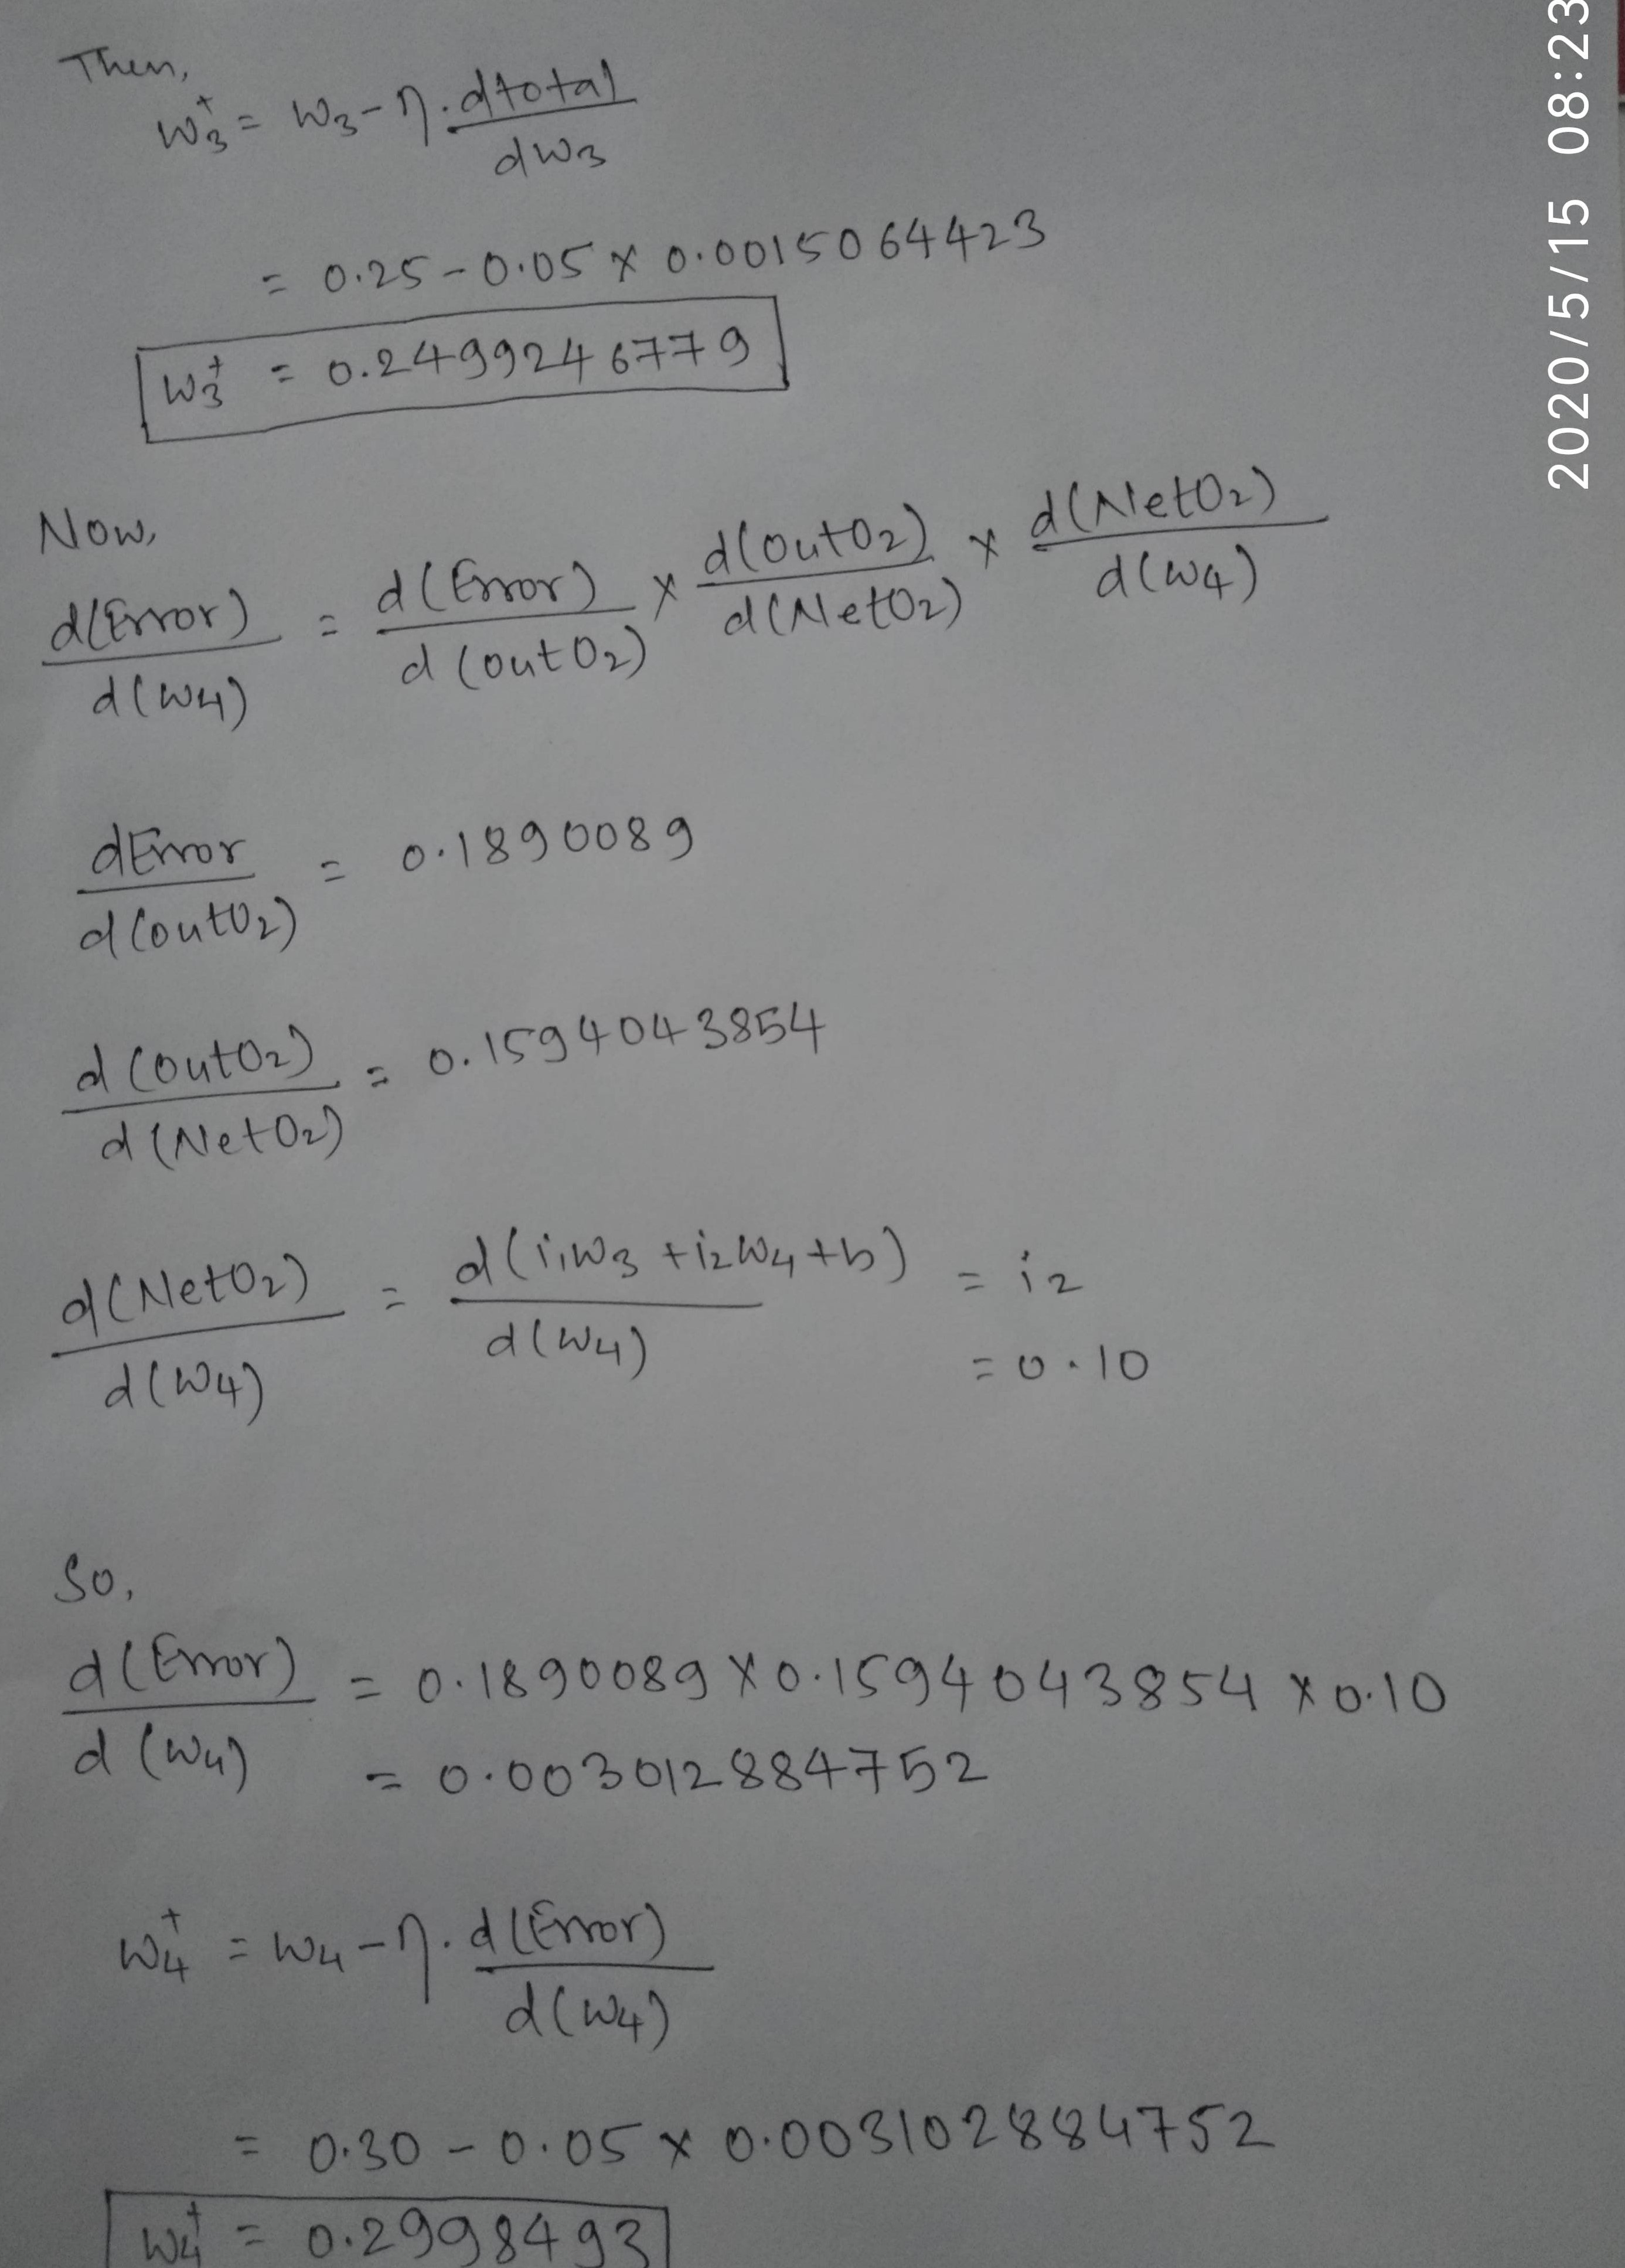 Then,
w₃⁺ = w₃ - η . dtotal / dw₃
= 0.25 - 0.05 x 0.0015064423
w₃⁺ = 0.2499246779
Now,
d(Error) / d(w4) = d(Error) / d(outO₂) x d(outO₂) / d(NetO₂) x d(NetO₂) / d(w4)
dError / d(outO₂) = 0.1890089
d(outO₂) / d(NetO₂) = 0.1594043854
d(NetO₂) / d(w4) = d(i₁w₃ + i₂w₄ + b) / d(w4) = i₂
= 0.10
So,
d(Error) / d(w4) = 0.1890089 x 0.1594043854 x 0.10
= 0.003012884752
w₄⁺ = w₄ - η . d(Error) / d(w4)
= 0.30 - 0.05 x 0.003102884752
w₄⁺ = 0.2998493
2020/5/15 08:23